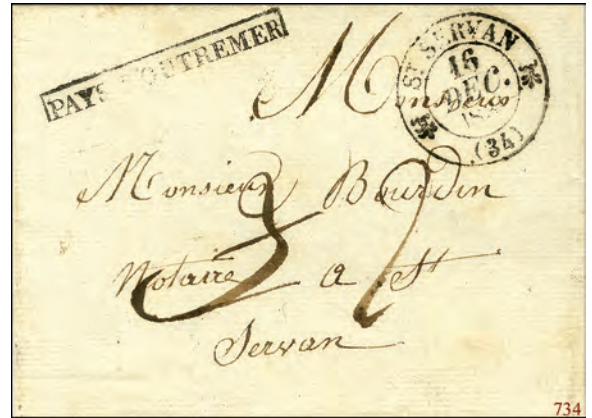 PAYS D'OUTREMER
ST SERVAN
16
DEC.
(34)
Monsieur
Monsieur Bourdin
Notaire a St
Servan
32
734